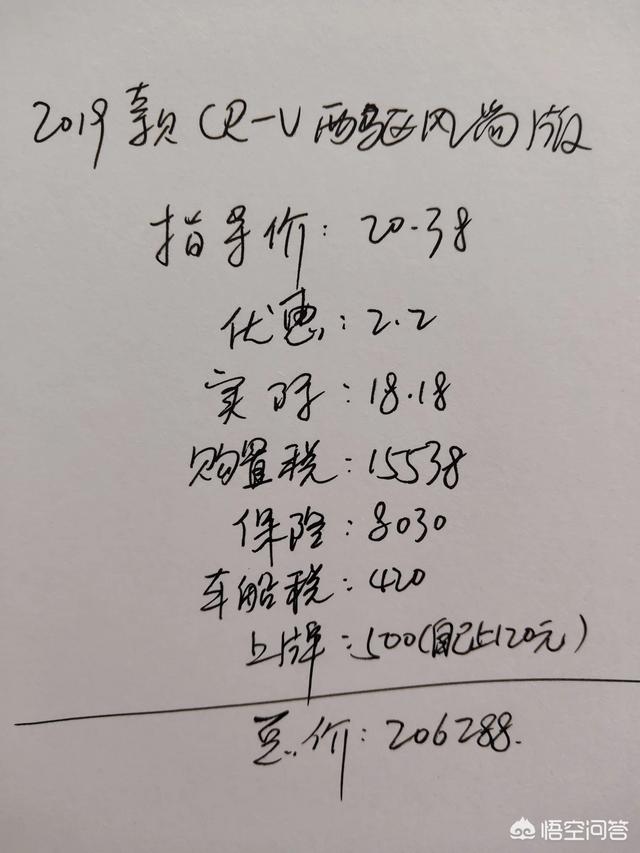 2019款CR-V两驱风尚版
指导价:20.38
优惠:2.2
实际:18.18
购置税:15538
保险:8030
车船税:420
上牌:500(自己上120元)
总价:206288.
悟空问答